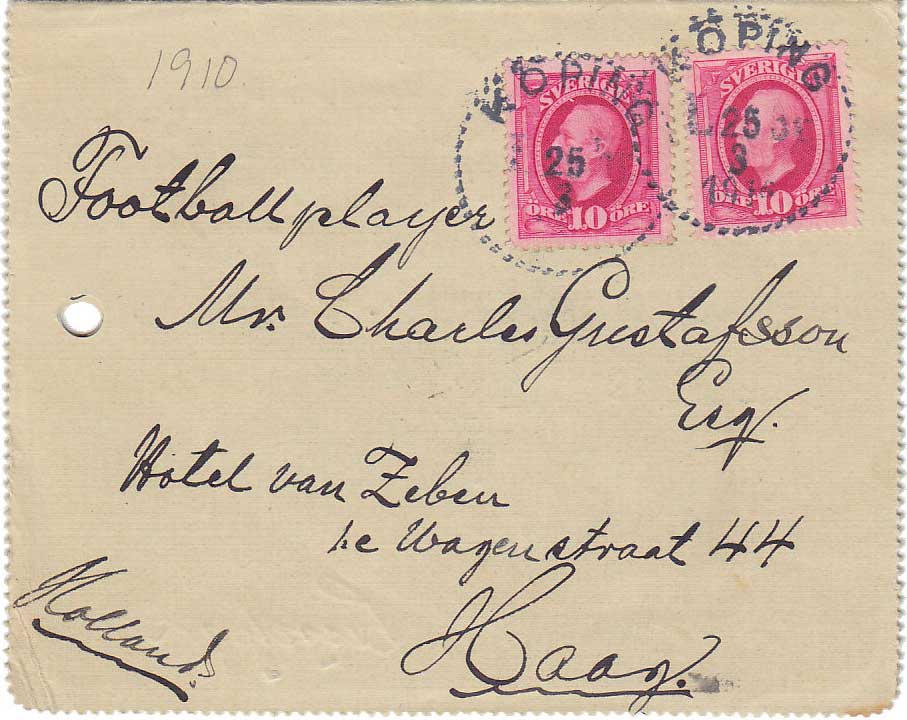 1910
KÖPING
25
3
KÖPING
25
3
SVERIGE
ÖRE 10 ÖRE
SVERIGE
ÖRE 10 ÖRE
Footballplayer
Mr. Charles Gustafsson
Esq.
Hotel van Zeben
Wagenstraat 44
Haag.
Holland.